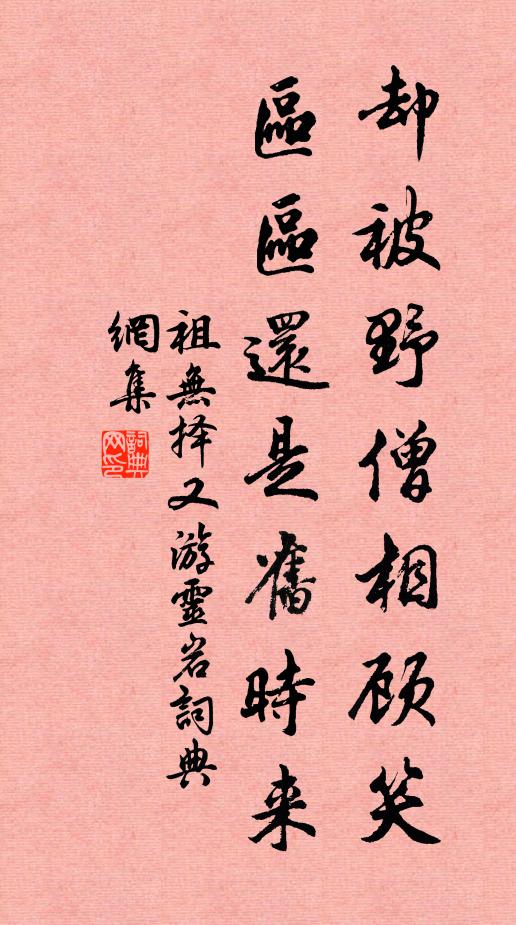 却被野僧相顾笑
區區還是舊時来
祖無择又游靈岩詞典
網集
詞典
网印